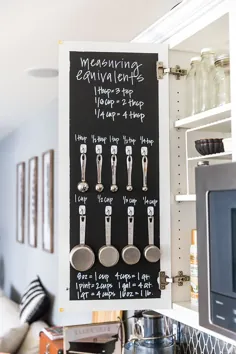 measuring
equivalents
1 tbsp = 3 tsp
1/8 cup = 2 tbsp
1/4 cup = 4 tbsp
1 tbsp 1/2 tbsp 1 tsp 1/2 tsp
1 cup 1/2 cup 1/3 cup 1/4 cup
8oz = 1 cup 4 cups = 1 qt.
1 pint = 2 cups 1 gal = 4 qt.
1 qt. = 4 cups 16oz = 1 lb.